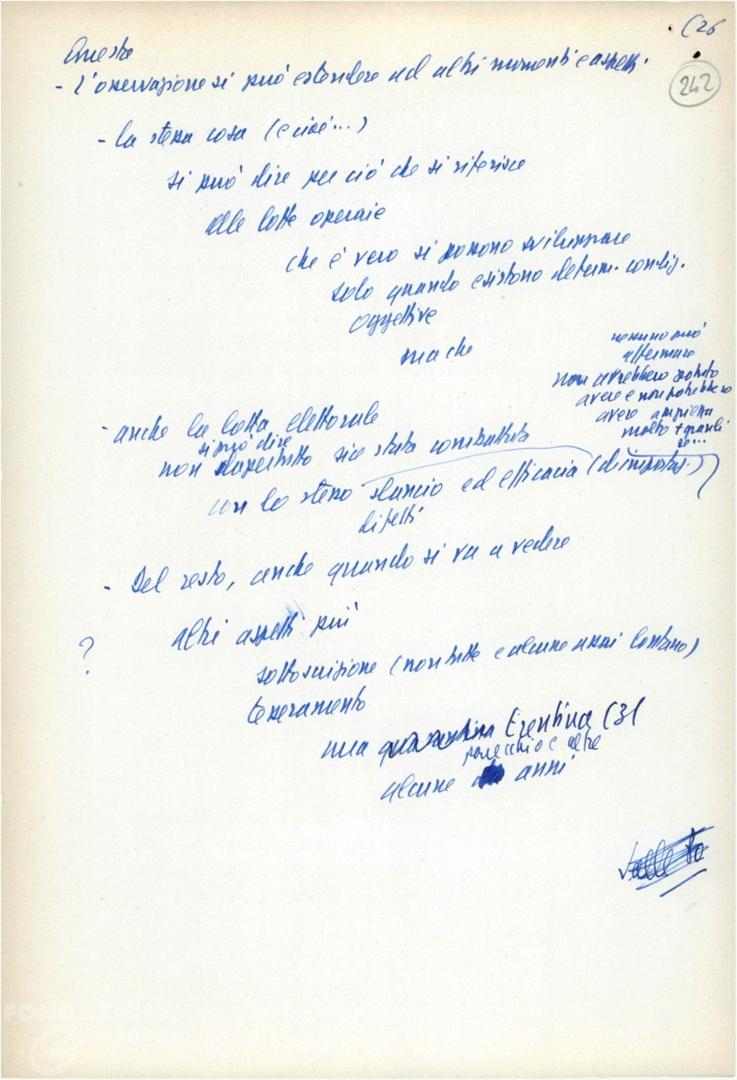 C26
242
Questa
- l'osservazione si può estendere ad altri momenti e aspetti.
- la stessa cosa (e cioè...)
si può dire per ciò che si riferisce
alle lotte operaie
che è vero si possono sviluppare
solo quando esistono determ. condiz.
oggettive
ma che
nessuno può
affermare
non avrebbero potuto
avere e non potrebbero
avere ampiezza
molto + grandi
se...
- anche la lotta elettorale
si può dire
non dappertutto sia stata combattuta
con lo stesso slancio ed efficacia (di impostaz.)
difetti
- Del resto, anche quando si va a vedere
altri aspetti più
?
sottoscrizione (non tutte e alcune assai lontano)
tesseramento
una trentina (31
parecchio e altre
alcune anni
valle Po
FONDAZIONE
GRAMSCI